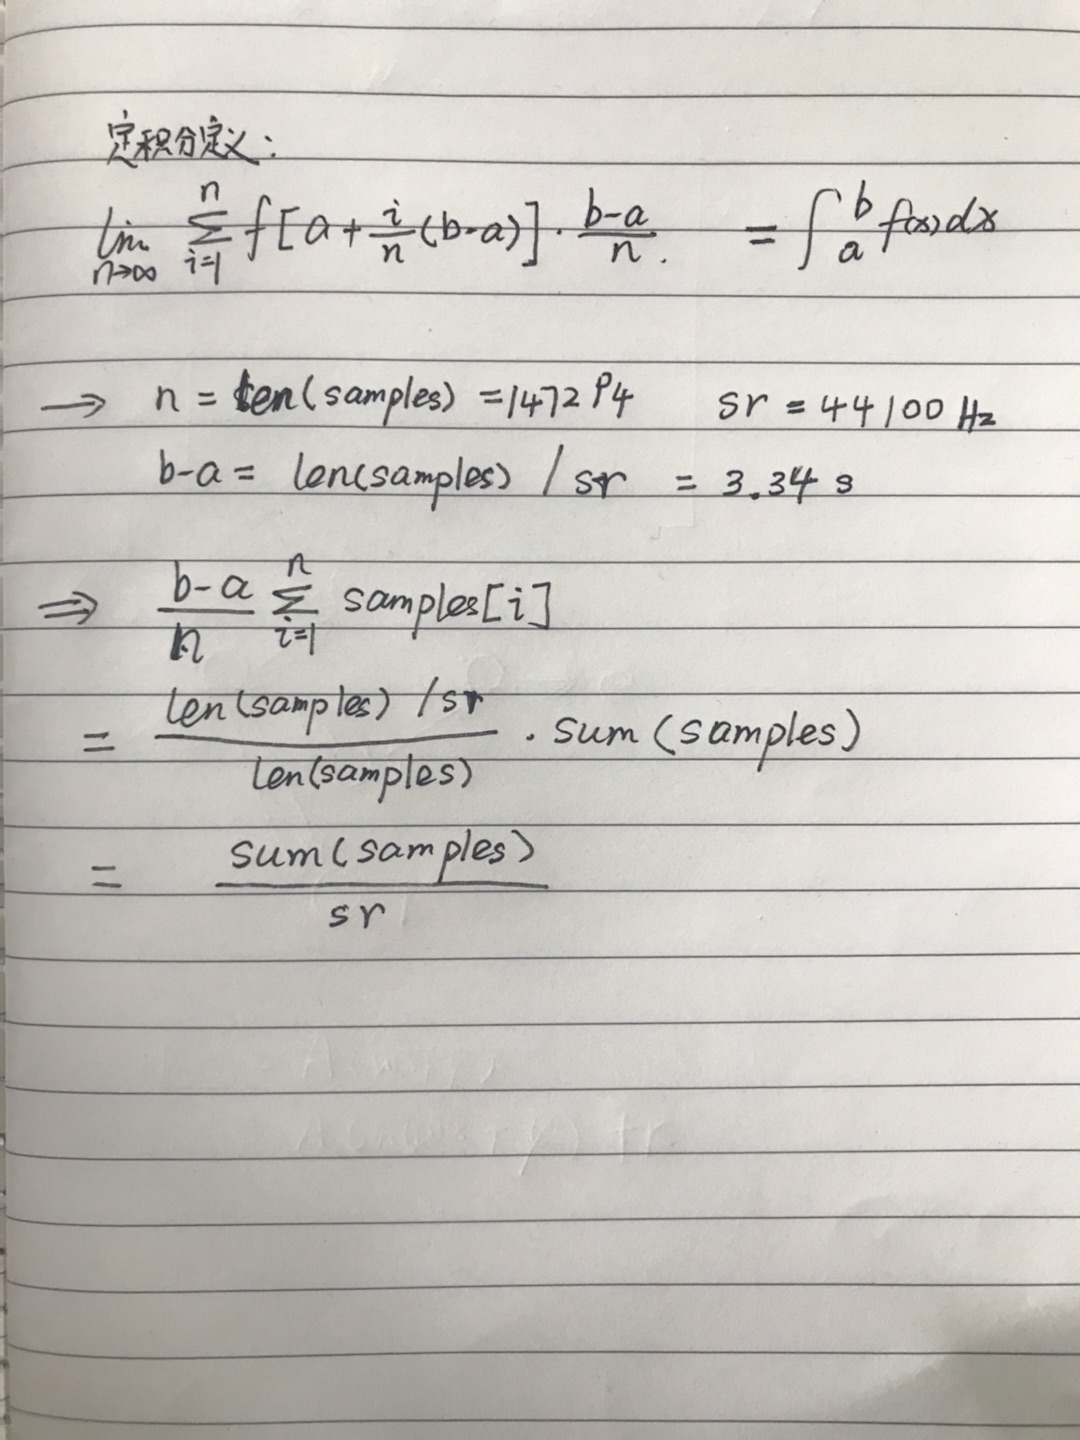 定积分定义：
lim n→∞ n Σ i=1 f[a+ i/n (b-a)]· b-a/n . = ∫ b a f(x)dx
→ n = len(samples) =147294 sr = 44100 Hz
b-a = len(samples) / sr = 3.34 s
⇒ b-a/n n Σ i=1 samples[i]
= len(samples) /sr / len(samples) · sum(samples)
= sum(samples) / sr